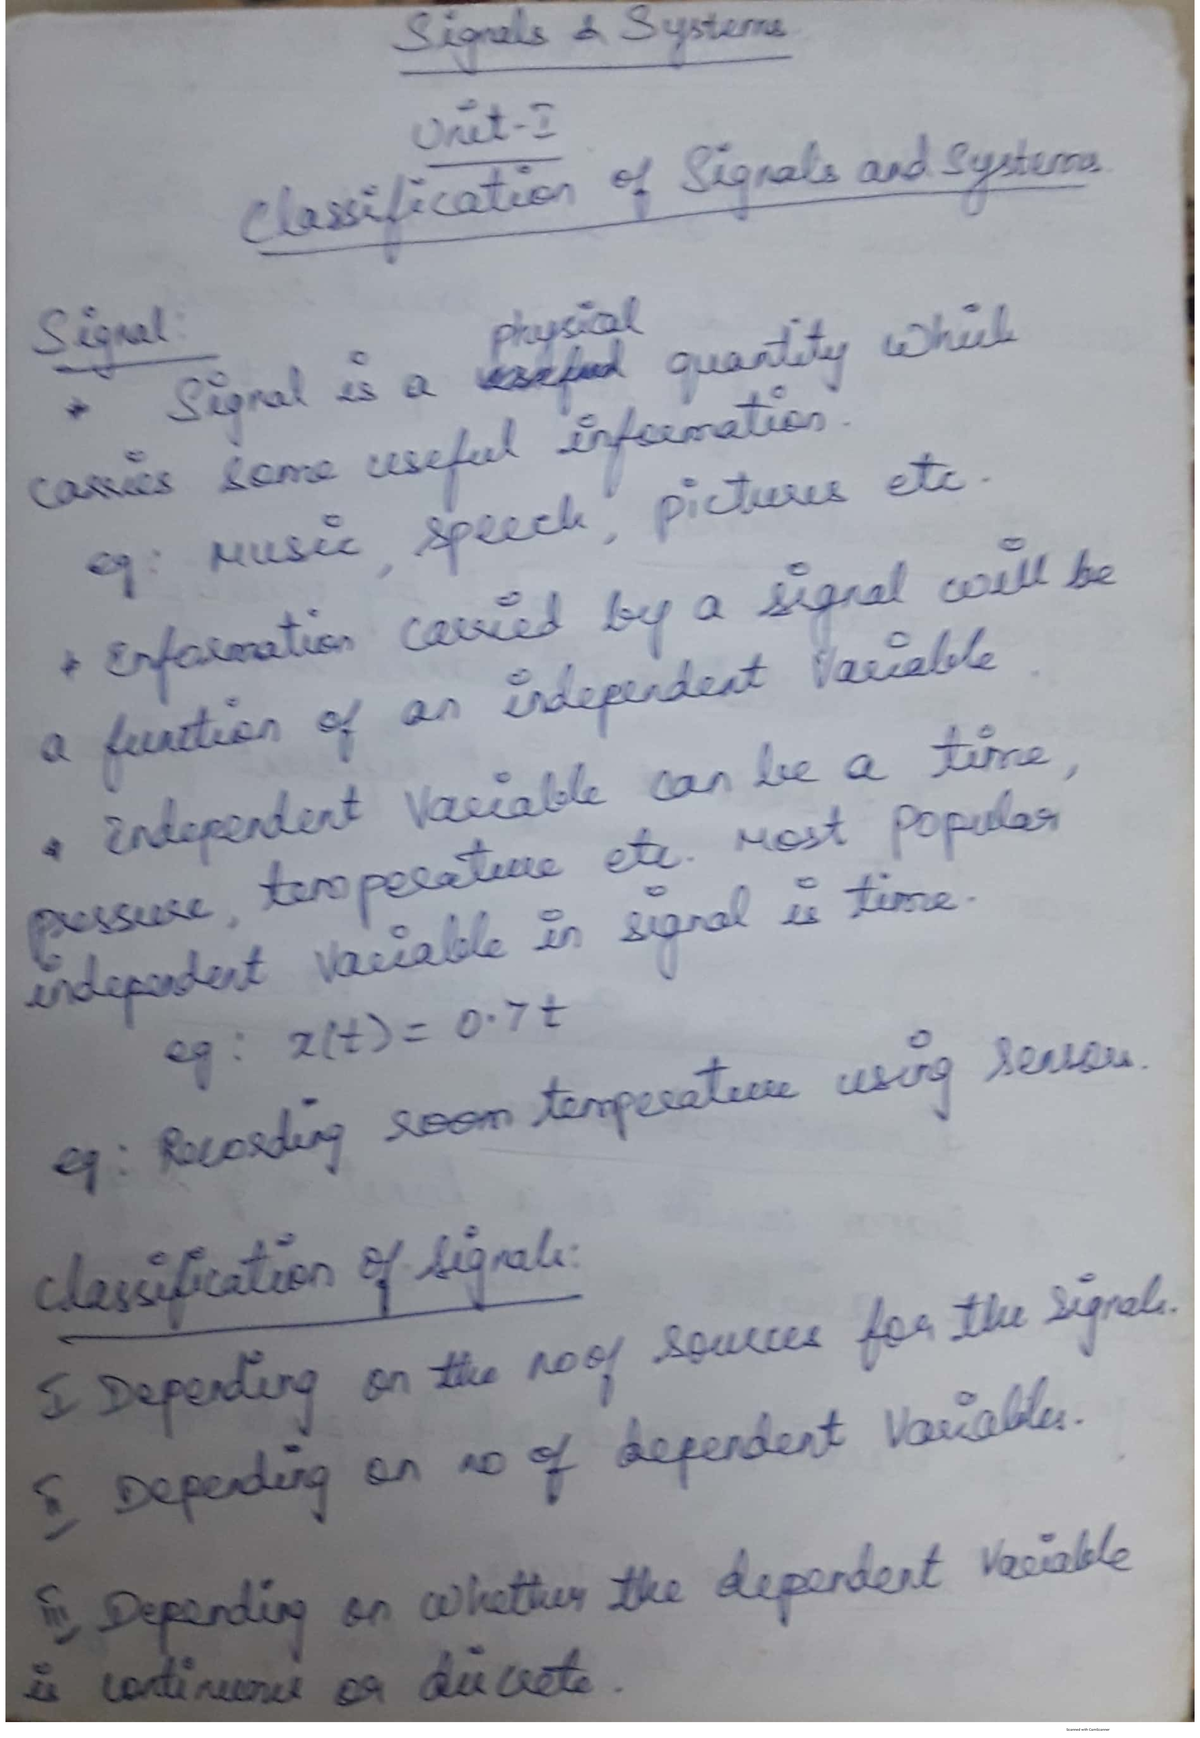 Signals & Systems
Unit-I
Classification of Signals and Systems.
Signal:
physical
* Signal is a useful quantity which
carries some useful information.
eg: Music, speech, pictures etc.
* Information carried by a signal will be
a function of an independent Variable.
* Independent Variable can be a time,
pressure, temperature etc. Most popular
independent Variable in signal is time.
eg: x(t) = 0.7t
eg: Recording room temperature using sensor.
Classification of signals:
I Depending on the no of sources for the signals.
II Depending on no of dependent Variables.
III Depending on whether the dependent Variable
is continuous or discrete.
Scanned with CamScanner